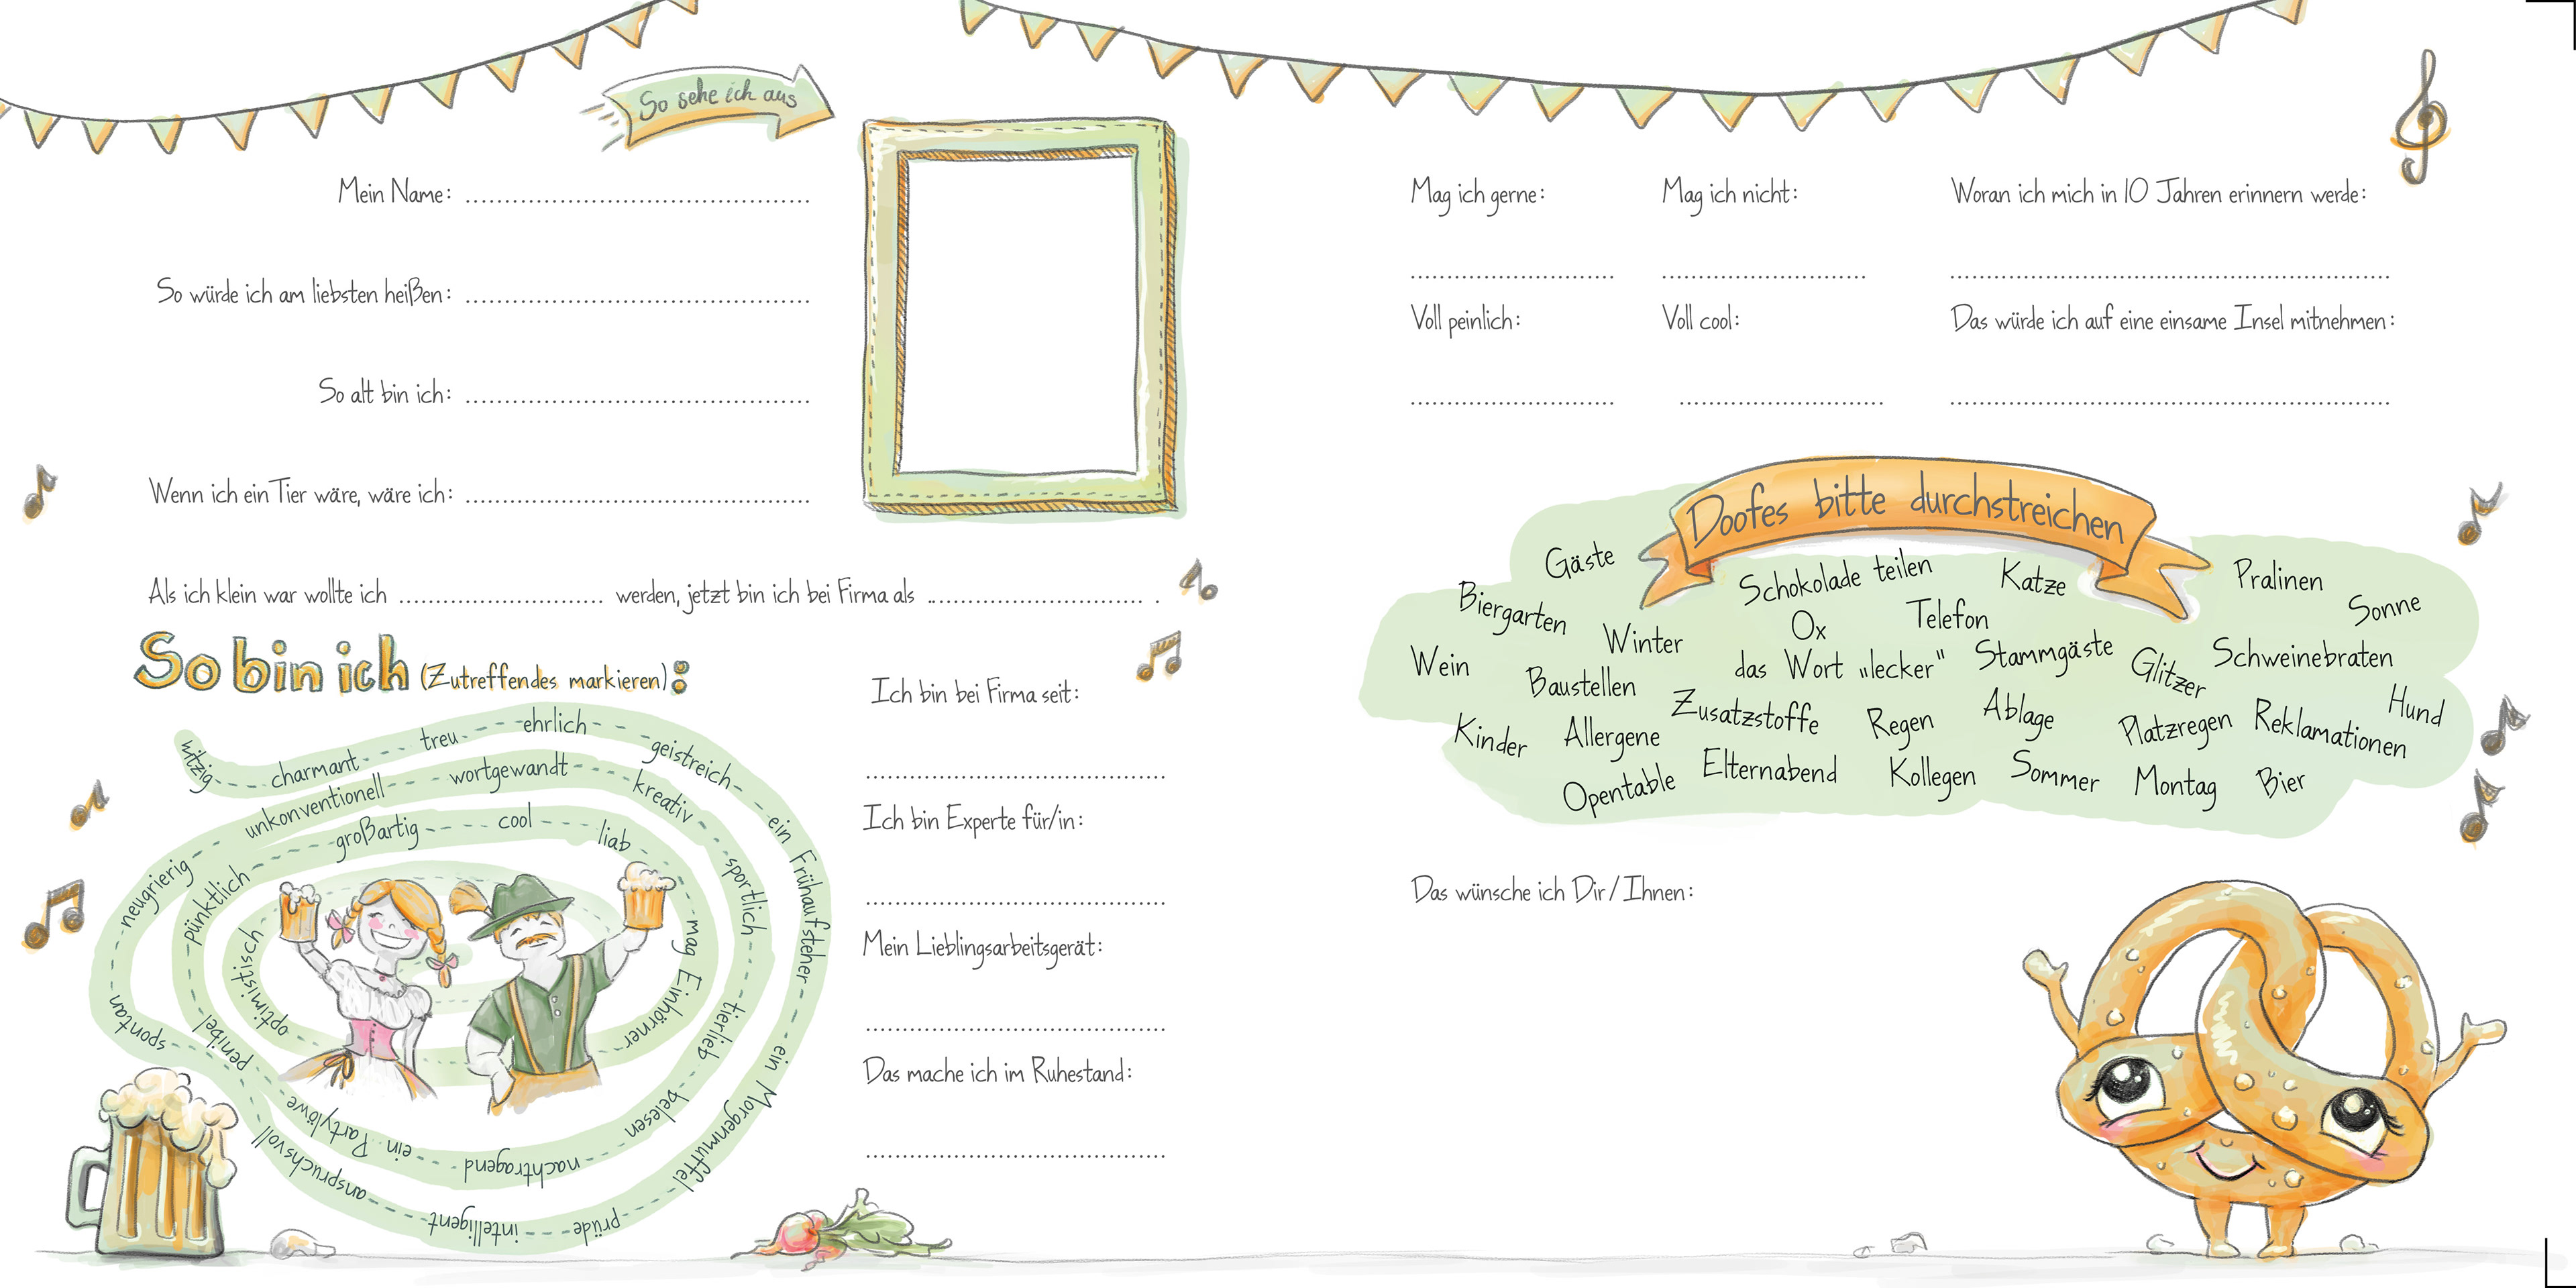 So sehe ich aus
Mein Name:
So würde ich am liebsten heißen:
So alt bin ich:
Wenn ich ein Tier wäre, wäre ich:
Als ich klein war wollte ich ........ werden, jetzt bin ich bei Firma als ........ .
So bin ich (Zutreffendes markieren):
witzig - charmant - treu - ehrlich - geistreich - ein Frühaufsteher - ein Morgenmuffel - prüde - intelligent - anspruchsvoll - spontan - neugrierig - unkonventionell - wortgewandt - kreativ - sportlich - tierlieb - belesen - nachtragend - ein Partylöwe - penibel - pünktlich - großartig - cool - liab - mag Einhörner - optimistisch
Ich bin bei Firma seit:
Ich bin Experte für/in:
Mein Lieblingsarbeitsgerät:
Das mache ich im Ruhestand:
Mag ich gerne:
Mag ich nicht:
Woran ich mich in 10 Jahren erinnern werde:
Voll peinlich:
Voll cool:
Das würde ich auf eine einsame Insel mitnehmen:
Doofes bitte durchstreichen
Gäste
Schokolade teilen
Katze
Pralinen
Biergarten
Sonne
Winter
Ox
Telefon
Wein
Baustellen
das Wort „lecker"
Stammgäste
Glitzer
Schweinebraten
Kinder
Allergene
Zusatzstoffe
Regen
Ablage
Platzregen
Reklamationen
Hund
Opentable
Elternabend
Kollegen
Sommer
Montag
Bier
Das wünsche ich Dir / Ihnen: